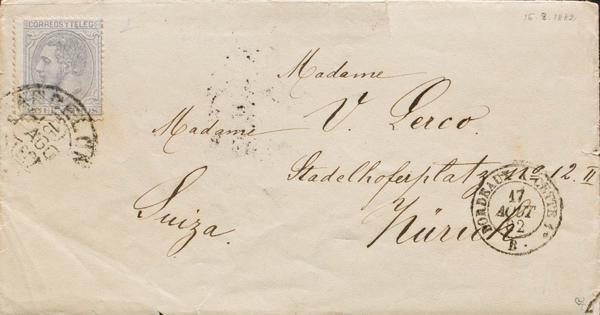 15.8.1882
CORREOS Y TELEG
BARCELONA
AGO
Madame
Madame V. Lerco.
Stadelhoferplatz no. 12. II
Suiza.
Zürich
BORDEAUX
17
AOUT
82
B.